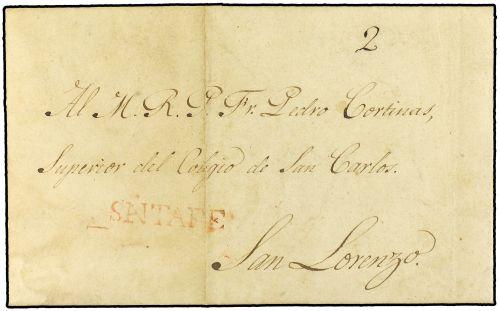 2
Al M. R. P. Fr. Pedro Cortinas,
Superior del Colegio de San Carlos.
SNTAFE
San Lorenzo.